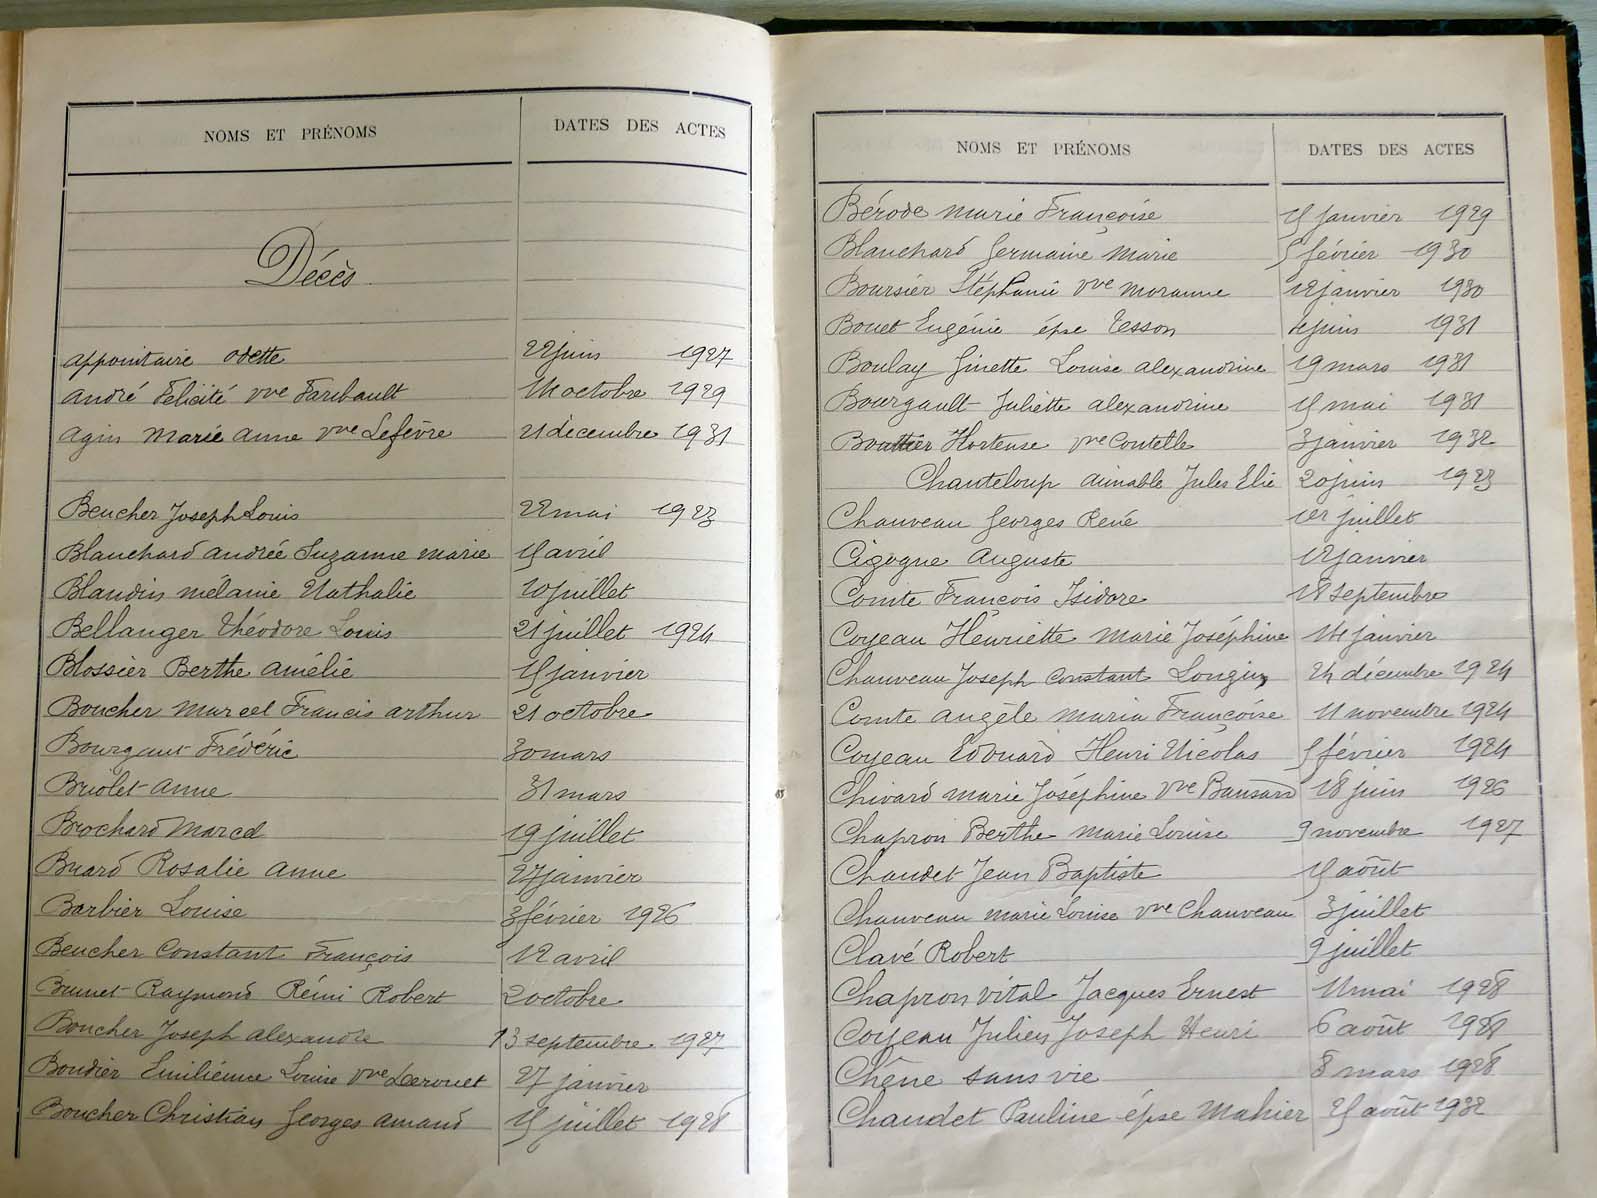 NOMS ET PRÉNOMS DATES DES ACTES
Décès
Appointaire Odette 22 juin 1927
André Félicité vve Faribault 11 octobre 1929
Agin Marie Anne vve Lefèvre 21 décembre 1931
Beucher Joseph Louis 22 mai 1923
Blanchard Andrée Suzanne Marie 15 avril
Blandin Mélanie Nathalie 10 juillet
Bellanger Théodore Louis 21 juillet 1924
Blossier Berthe Amélie 15 janvier
Boucher Marcel Francis Arthur 21 octobre
Bourgaut Frédéric 30 mars
Briolet Anne 31 mars
Brochard Marcel 19 juillet
Buard Rosalie Anne 27 janvier
Barbier Louise 3 février 1926
Beucher Constant François 12 avril
Brunet Raymond Rémi Robert 2 octobre
Boucher Joseph Alexandre 13 septembre 1927
Boudier Emilienne Louise vve Derouet 27 janvier
Boucher Christian Georges Amand 15 juillet 1928
NOMS ET PRÉNOMS DATES DES ACTES
Bérode Marie Françoise 15 janvier 1929
Blanchard Germaine Marie 5 février 1930
Boursier Stéphanie vve Moranne 12 janvier 1930
Bouet Eugénie épse Tesson 4 juin 1931
Boulay Ginette Louise Alexandrine 19 mars 1931
Bourgault Juliette Alexandrine 15 mai 1931
Bouttier Hortense vve Coutelle 3 janvier 1932
Chanteloup Aimable Jules Elie 20 juin 1923
Chauveau Georges René 1er juillet
Cigogne Auguste 12 janvier
Comte François Isidore 18 septembre
Coyeau Henriette Marie Joséphine 14 janvier
Chauveau Joseph Constant Longin 24 décembre 1924
Comte Angèle Maria Françoise 11 novembre 1924
Coyeau Edouard Henri Nicolas 5 février 1924
Chivard Marie Joséphine vve Bansard 18 juin 1926
Chapron Berthe Marie Louise 9 novembre 1927
Chaudet Jean Baptiste 15 août
Chauveau Marie Louise vve Chauveau 3 juillet
Clavé Robert 9 juillet
Chapron Vital Jacques Ernest 11 mai 1928
Coyeau Julien Joseph Henri 6 août
Chêne sans vie 8 mars 1928
Chaudet Pauline épse Mahier 25 août 1932